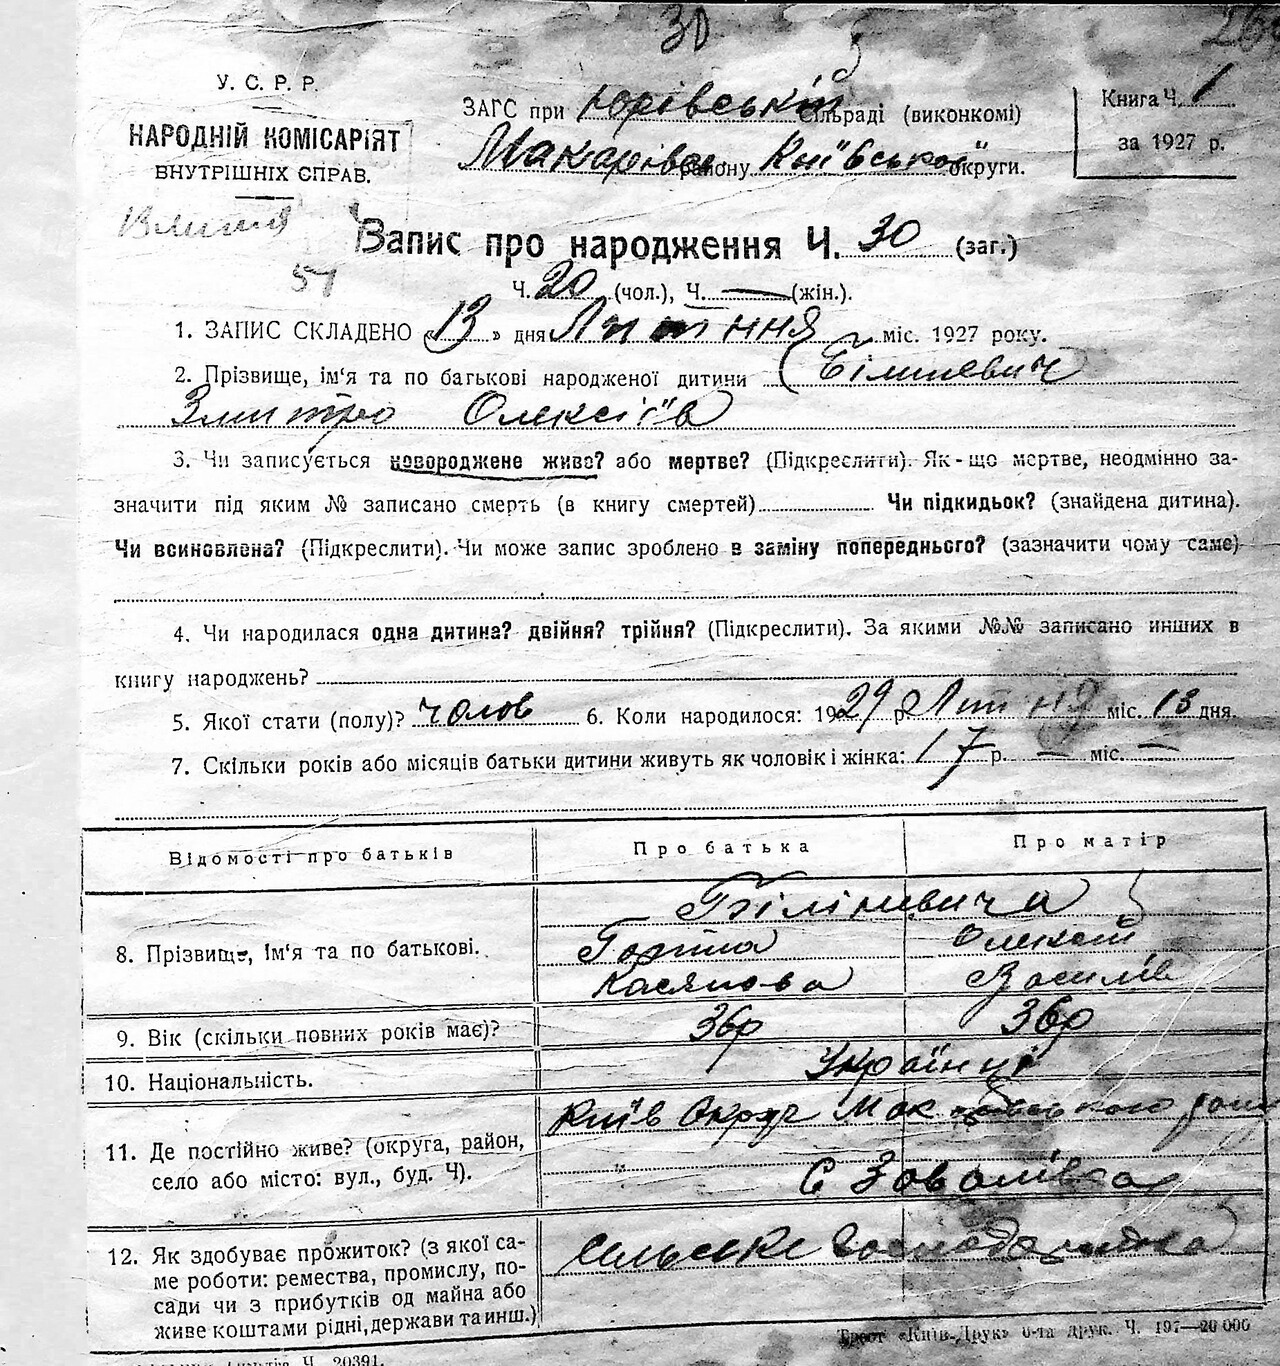 30
У. С. Р. Р.
НАРОДНІЙ КОМІСАРІЯТ
ВНУТРІШНІХ СПРАВ.
ЗАГС при Юрівській сільраді (виконкомі)
Макарівськ району Київської округи.
Книга Ч. 1
за 1927 р.
51
Запис про народження Ч. 30 (заг.)
Ч. 20 (чол.), Ч. — (жін.).
1. ЗАПИС СКЛАДЕНО «13» дня Литння міс. 1927 року.
2. Прізвище, ім'я та по батькові народженої дитини Білиневич
Змитро Олексіїв
3. Чи записується новороджене живе? або мертве? (Підкреслити). Як-що мертве, неодмінно за-
значити під яким № записано смерть (в книгу смертей) Чи підкидьок? (знайдена дитина).
Чи всиновлена? (Підкреслити). Чи може запис зроблено в заміну попереднього? (зазначити чому саме)
4. Чи народилася одна дитина? двійня? трійня? (Підкреслити). За якими №№ записано инших в
книгу народжень?
5. Якої стати (полу)? чолов 6. Коли народилося: 1929 р. Литня міс. 13 дня.
7. Скільки років або місяців батьки дитини живуть як чоловік і жінка: 17 р. — міс. —
Відомості про батьків Про батька Про матір
Біліневича
8. Прізвище, Ім'я та по батькові. Олексій
Касянова Василів
9. Вік (скільки повних років має)? 36р 36р
10. Національність. Українці
Київ Округ Макарівського
11. Де постійно живе? (округа, район,
село або місто: вул., буд. Ч). " С Завалівка
12. Як здобуває прожиток? (з якої са- Сільське господарство
ме роботи: ремества, промислу, по-
сади чи з прибутків од майна або
живе коштами рідні, держави та инш.)
Трест «Київ-Друк» 6-та друк. Ч. 197—20 000
Ч. 20391.